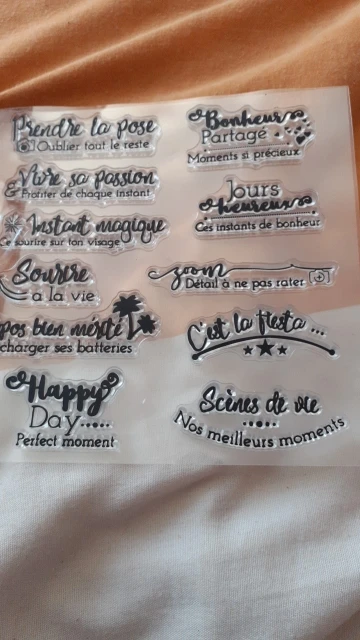 Prendre la pose
Oublier tout le reste
Vivre sa passion
& Profiter de chaque instant
Instant magique
Ce sourire sur ton visage
Sourire
à la vie
pos bien mérité
charger ses batteries
Happy
Day.....
Perfect moment
Bonheur
Partagé
Moments si précieux
Jours
heureux
Ces instants de bonheur
zoom
Détail à ne pas rater
C'est la fiesta ...
Scènes de vie
Nos meilleurs moments